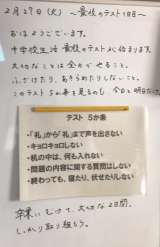 2月27日(火) ～最後のテスト1日目～
おはようございます。
中学校生活 最後のテストが始まります。
大切なことは全力でやること。
ふざけたり、あきらめたりしないこと。
このテスト5か条を見るのも、今日と明日だけ。
テスト 5か条
・「礼」から「礼」まで声を出さない
・キョロキョロしない
・机の中は、何も入れない
・問題の内容に関する質問はしない
・終わっても、寝たり、伏せたりしない
卒業にむけて、大切な2日間。
しっかり取り組もう。